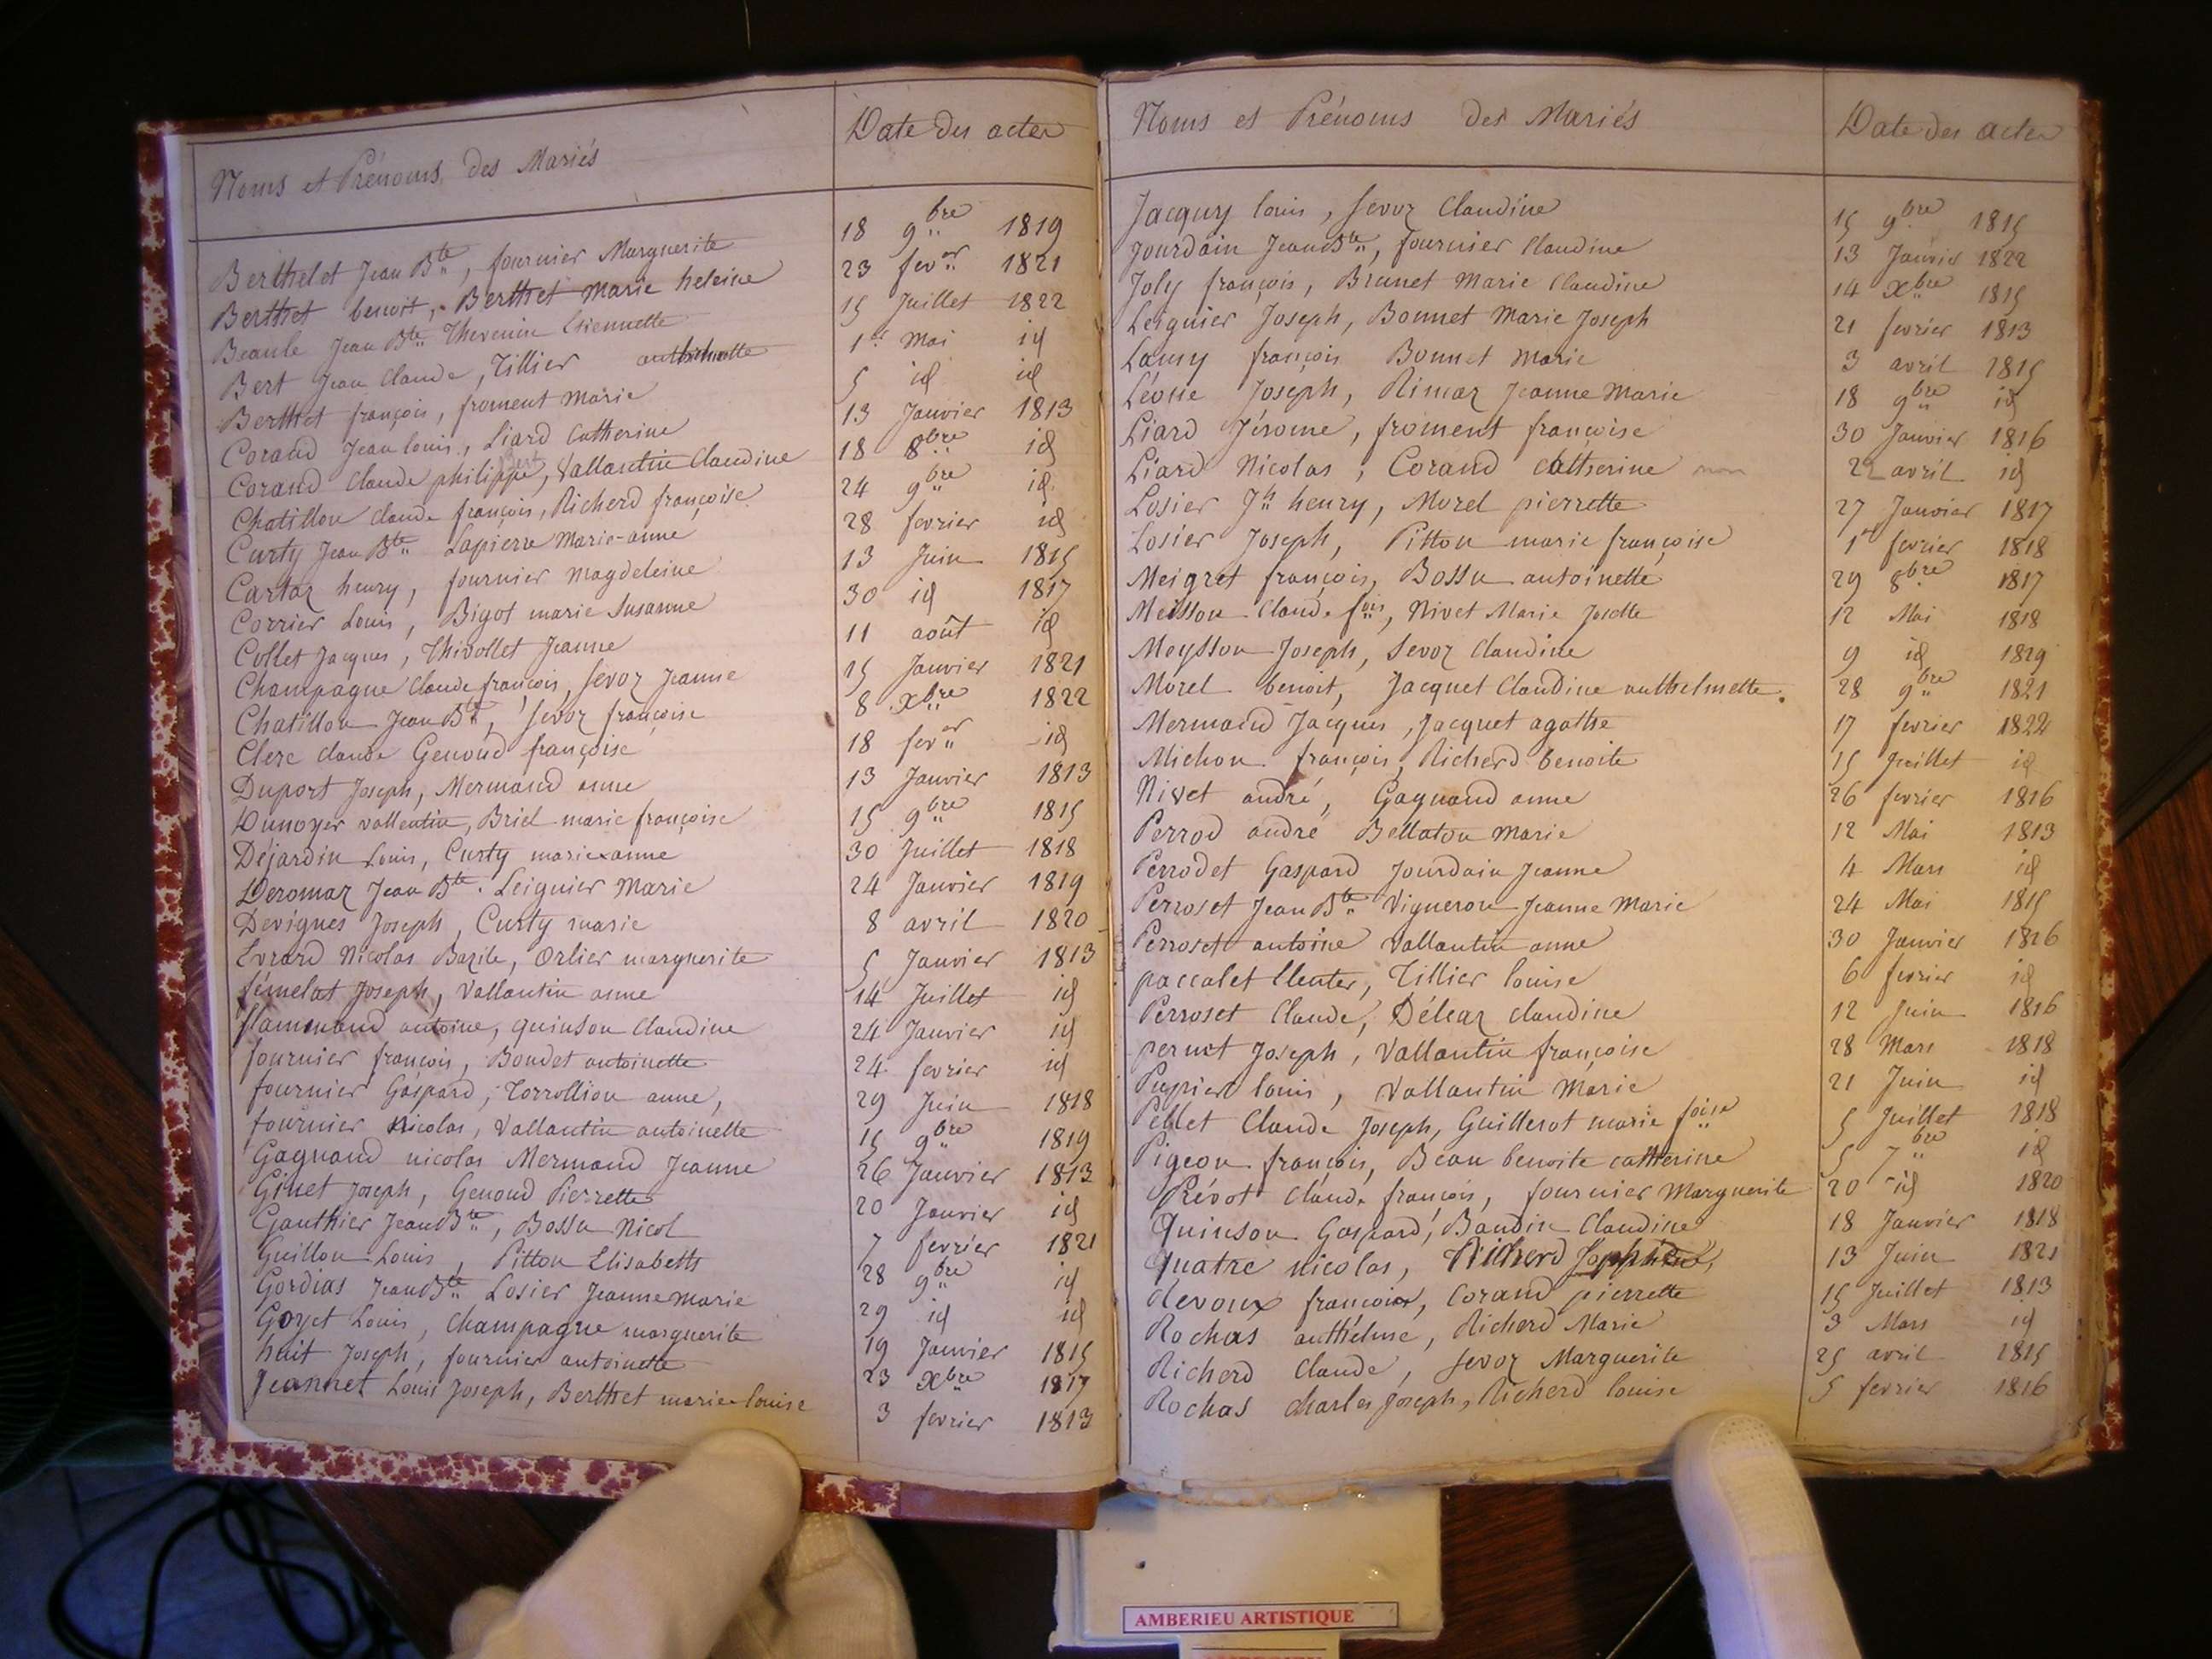 Noms et Prénoms des Mariés Date des actes
Berthelet Jean Bte, fournier Marguerite 18 9bre 1819
Berthet benoit, Berthet Marie heleine 23 fevr 1821
Beaule Jean Bte Thevenin Etiennette 15 Juillet 1822
Bert Jean Claude, Tillier anthelmette 1er Mai id
Berthet françois, froment Marie 5 id id
Corand Jean louis, Liard Catherine 13 Janvier 1813
Corand Claude philippe, Vallantin Claudine 18 8bre id
Chatillon Claude françois, Richerd françoise 24 9bre id
Curty Jean Bte Lapierre Marie-anne 28 fevrier id
Cartaz henry, fournier Magdeleine 13 Juin 1815
Corrier Louis, Bigot marie Susanne 30 id 1817
Collet Jacques, Thivollet Jeanne 11 août id
Champagne Claude françois, Sevoz Jeanne 15 Janvier 1821
Chatillon Jean Bte, Sevoz françoise 8 xbre 1822
Clerc claude Genoud françoise 18 fevr id
Duport Joseph, Mermand anne 13 Janvier 1813
Dunoyer vallentin, Briel marie françoise 15 9bre 1815
Dejardin Louis, Curty marie anne 30 Juillet 1818
Deromaz Jean Bte. Leignier Marie 24 Janvier 1819
Devignes Joseph, Curty marie 8 avril 1820
Evrard Nicolas Bazile, Orlier marguerite 5 Janvier 1813
femelat Joseph, Vallantin anne 14 Juillet id
flammand antoine, quinson Claudine 24 Janvier id
fournier françois, Boudet antoinette 24 fevrier id
fournier Gaspard, Torrollion anne, 29 Juin 1818
fournier Nicolas, Vallantin antoinette 15 9bre 1819
Gagnand nicolas Mermand Jeanne 26 Janvier 1813
Ginet Joseph, Genoud Pierrette 20 Janvier id
Gauthier Jean Bte, Bossu Nicol 7 fevrier 1821
Guillon Louis, Pitton Elisabeth 28 9bre id
Gordias Jean Bte Losier Jeanne marie 29 id id
Goyet Louis, Champagne marguerite 19 Janvier 1815
huit Joseph, fournier antoinette 23 xbre 1817
Jeannet Louis Joseph, Berthet marie-louise 3 fevrier 1813
Noms et Prénoms des Mariés Date des actes
Jacquy louis, Sevoz Claudine 15 9bre 1815
Jourdain Jean Bte, fournier Claudine 13 Janvier 1822
Joly françois, Brunet Marie Claudine 14 xbre 1815
Leignier Joseph, Bonnet Marie Joseph 21 fevrier 1813
Lamy françois Bonnet Marie 3 avril 1815
Léone Joseph, Rimaz Jeanne Marie 18 9bre id
Liard Jérome, froment françoise 30 Janvier 1816
Liard Nicolas, Corand Catherine non 22 avril id
Losier Jh henry, Morel pierrette 27 Janvier 1817
Losier Joseph, Pitton marie françoise 1er fevrier 1818
Meigret françois, Bossu antoinette 29 8bre 1817
Meisson Claude fois, Nivet Marie Josette 12 Mai 1818
Moysson Joseph, Sevoz Claudine 9 id 1819
Morel benoit, Jacquet Claudine anthelmette. 28 9bre 1821
Mermand Jacques, Jacquet agathe 17 fevrier 1822
Michon françois, Richerd benoite 15 Juillet id
Nivet andré, Gagnand anne 26 fevrier 1816
Perrod andré Bellaton Marie 12 Mai 1813
Perrodet Gaspard Jourdain Jeanne 4 Mars id
Perroset Jean Bte Vigneron Jeanne Marie 24 Mai 1815
Perroset antoine Vallantin anne 30 Janvier 1816
paccalet Tillier louise 6 fevrier id
Perroset Claude, Déleaz claudine 12 Juin 1816
pernet Joseph, Vallantin françoise 28 Mars 1818
Pupier louis, Vallantin Marie 21 Juin id
Pellet Claude Joseph, Guillerot marie foise 5 Juillet 1818
Pigeon françois, Beau benoite catherine 5 7bre id
Prévot Claude françois, fournier Marguerite 20 id 1820
Quinson Gaspard, Baudin Claudine 18 Janvier 1818
Quatre nicolas, Richerd 13 Juin 1821
devoux françois, Corand pierrette 15 Juillet 1813
Rochas anthelme, Richerd Marie 3 Mars id
Richerd Claude, Sevoz Marguerite 25 avril 1815
Rochas charles Joseph, Richerd louise 5 fevrier 1816
AMBERIEU ARTISTIQUE